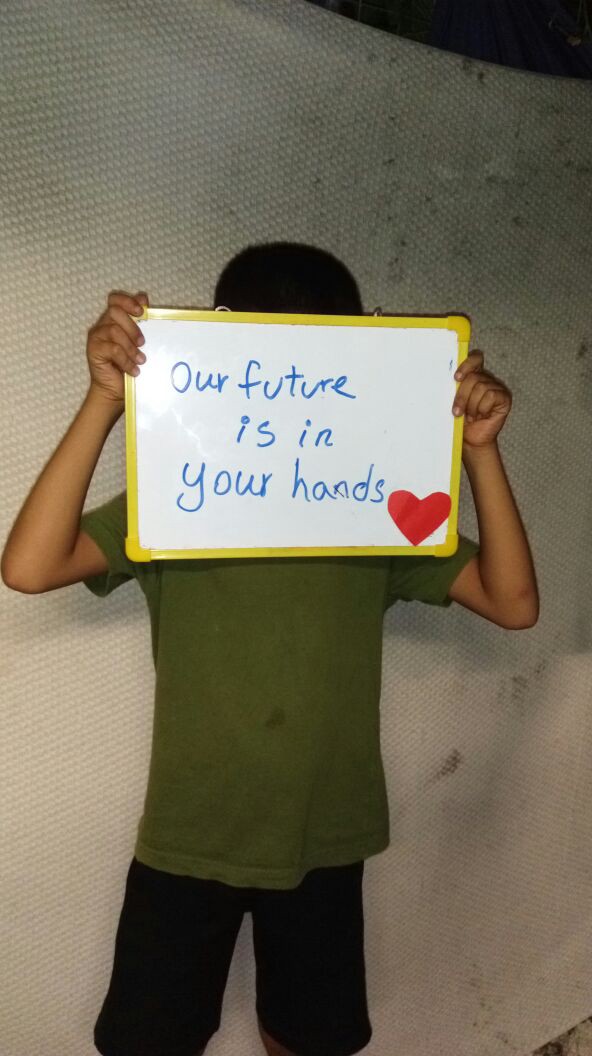 Our future
is in
your hands